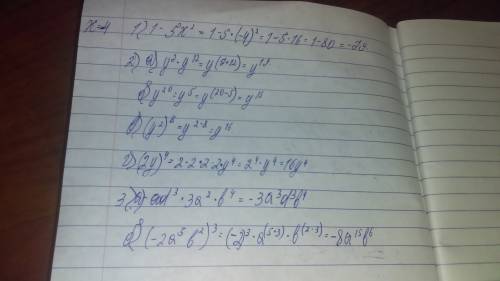 x=4 1) 1-5x² = 1-5·(-4)² = 1-5·16 = 1-80 = -79.
2) а) y²·y¹² = y(8+12) = y
б) y²⁰ = y⁵ = y(20-5) = y¹⁵
в) (y²)⁸ = y²·⁸ = y¹⁶
г) (2y)⁴ = 2·2·2·2·y⁴ = 2⁴·y⁴ = 16y⁴
3. а) ³·3a²·b⁴ = -3a
б) (-2a⁵b²)³ = (-2)³·a(5·3)·b(2·3) = -8a¹⁵b⁶